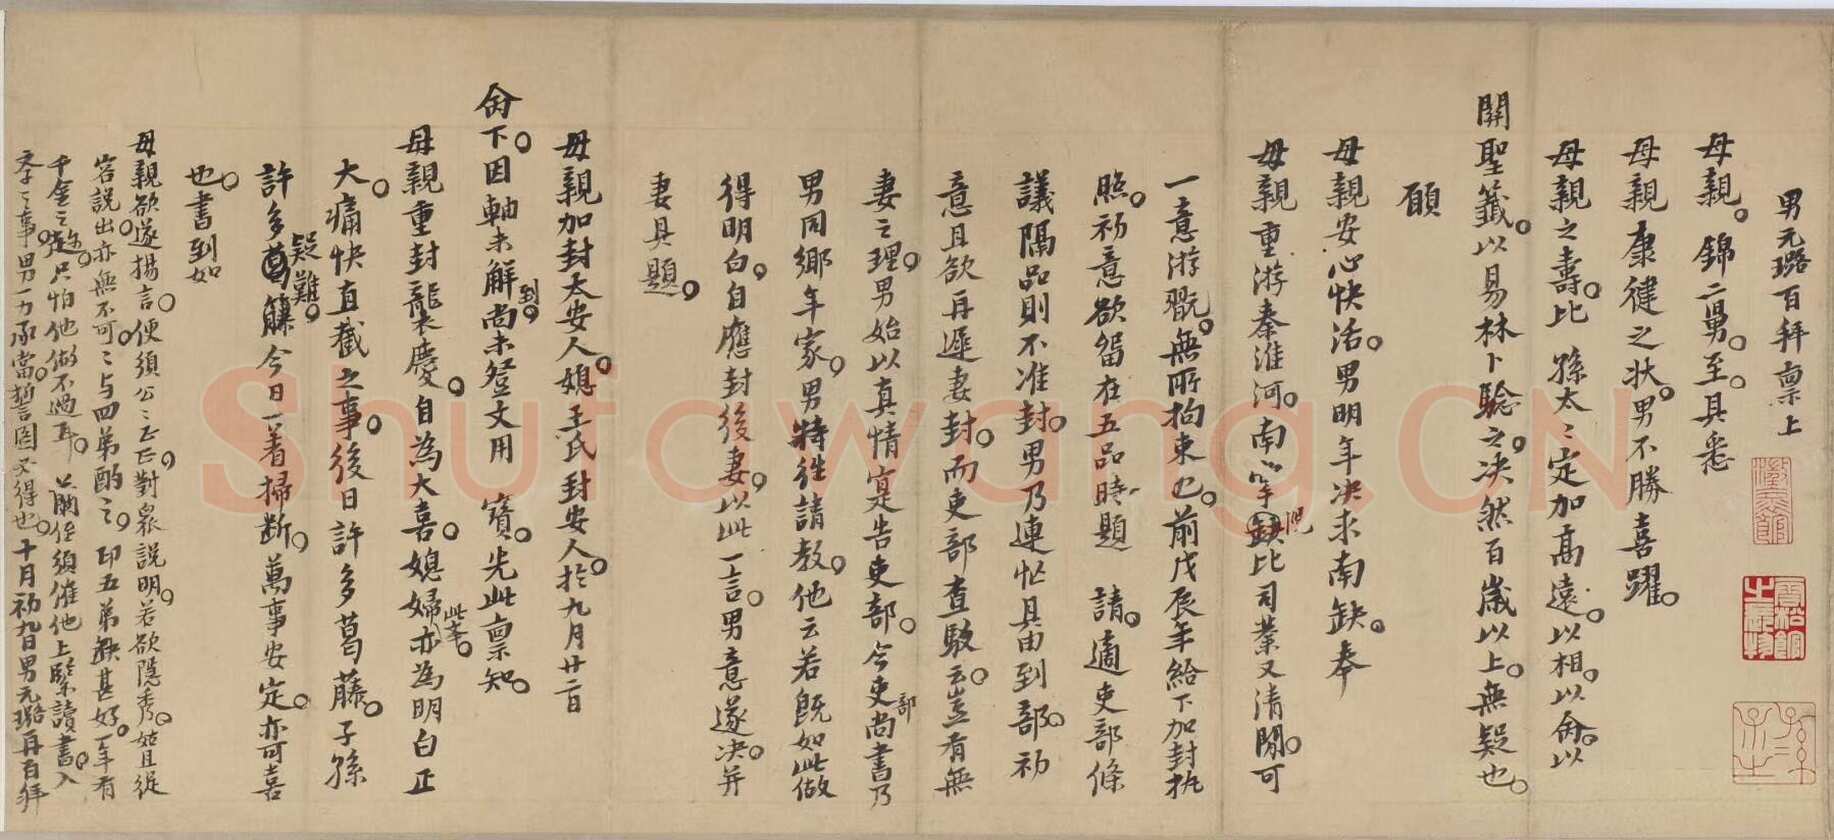 男元璐百拜禀上
母親。錦二舅。至。具悉
母親康健之狀。男不勝喜躍。
母親之壽。比孫太〻定加高遠。以相。以命。以
關聖籤。以易林卜驗之。決然百歲以上。無疑也。
願
母親安心快活。男明年決求南缺。奉
母親重游秦淮河。南缺比司業又清閒。可
一意游翫。無所拘束也。前戊辰年給下加封執
照。初意欲留在五品時題請。適吏部條
議隔品則不准封。男乃連忙具由到部。初
意且欲再遲妻封。而吏部查駮云。豈有無
妻之理。男始以真情寔告吏部。今吏部尚書乃
男同鄉年家。男特往請教。他云若既如此做
得明白。自應封後妻。以此一言。男意遂決。并
妻具題。
母親加封太安人。媳王氏封安人。於九月廿二日
命下。因軸未解到。尚未登文用寶。先此禀知。
母親重封疊慶。自為大喜。媳婦此事。亦為明白正
大。痛快直截之事。後日許多葛藤。子孫
許多疑難。今日一着掃断。萬事安定。亦可喜
也。書到如
母親欲遂揚言。便須公〻正正。對衆說明。若欲隱秀。姑且從
容説出。亦無不可〻與四弟酌之。印五弟缺甚好。一年有
千金之。只怕他做不過耳。爾侄須催他上緊讀書。入
季〻事。男一力承當。誓圖必得也。十月初九日男元璐再百拜
Shufawang.CN